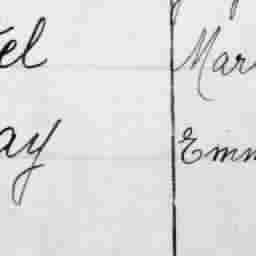 el Mar
ay Emm